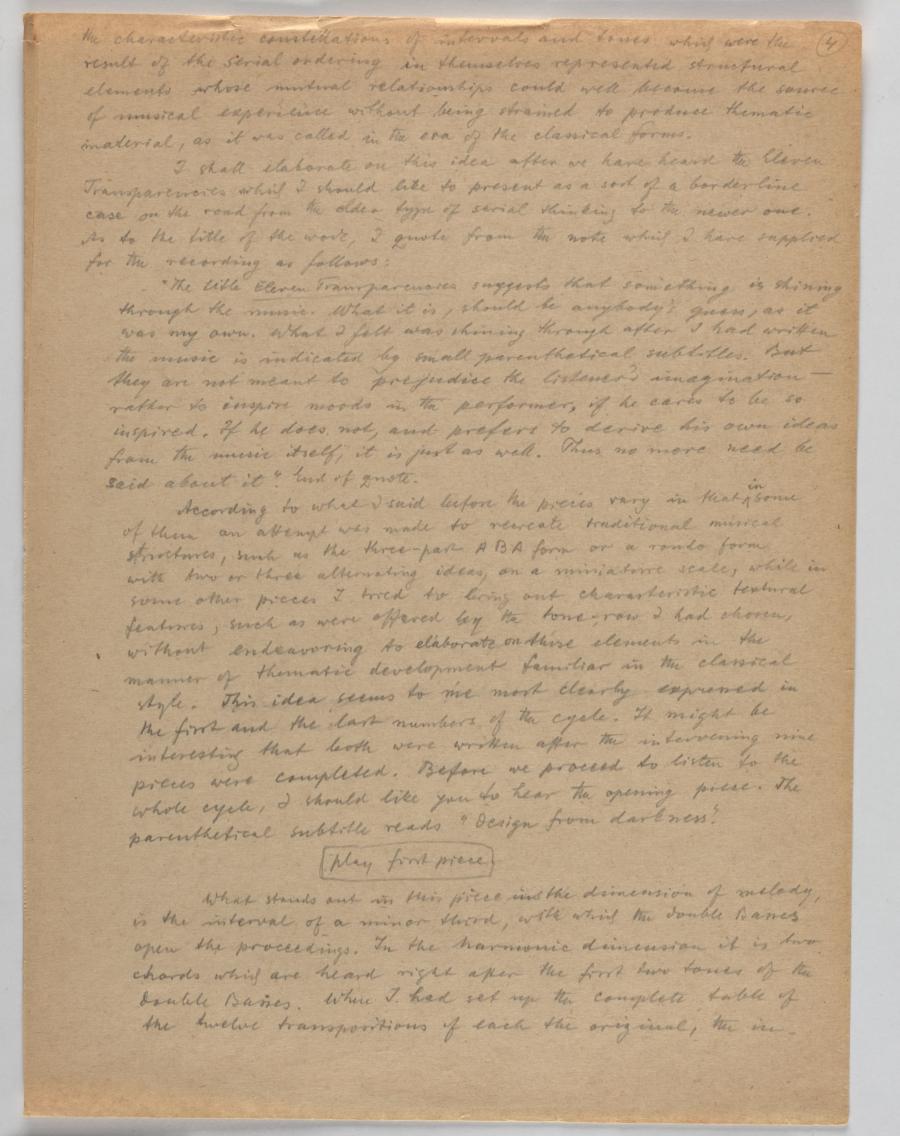 the characteristic constellations of intervals and tones which were the
4
result of the serial ordering in themselves represented structural
elements whose mutual relationships could well become the source
of musical experience without being strained to produce thematic
material, as it was called in the era of the classical forms.
I shall elaborate on this idea after we have heard the Eleven
Transparencies which I should like to present as a sort of a borderline
case on the road from the older type of serial thinking to the newer one.
As to the title of the work, I quote from the note which I have supplied
for the recording as follows:
"The title Eleven Transparencies suggests that something is shining
through the music. What it is, should be anybody's guess, as it
was my own. What I felt was shining through after I had written
the music is indicated by small parenthetical subtitles. But
they are not meant to prejudice the listener's imagination —
rather to inspire moods in the performer, if he cares to be so
inspired. If he does not, and prefers to derive his own ideas
from the music itself, it is just as well. Thus no more need be
said about it". End of quote.
According to what I said before the pieces vary in that in some
of them an attempt was made to recreate traditional musical
structures, such as the three-part ABA form or a rondo form
with two or three alternating ideas, on a miniature scale, while in
some other pieces I tried to bring out characteristic textural
features, such as were offered by the tone-row I had chosen,
without endeavoring to elaborate on these elements in the
manner of thematic development familiar in the classical
style. This idea seems to me most clearly expressed in
the first and the last numbers of the cycle. It might be
interesting that both were written after the intervening nine
pieces were completed. Before we proceed to listen to the
whole cycle, I should like you to hear the opening piece. The
parenthetical subtitle reads "Design from darkness".
play first piece
What stands out in this piece in the dimension of melody,
is the interval of a minor third, with which the double Basses
open the proceedings. In the harmonic dimension it is two
chords which are heard right after the first two tones of the
double Basses. When I had set up the complete table of
the twelve transpositions of each the original, the in-